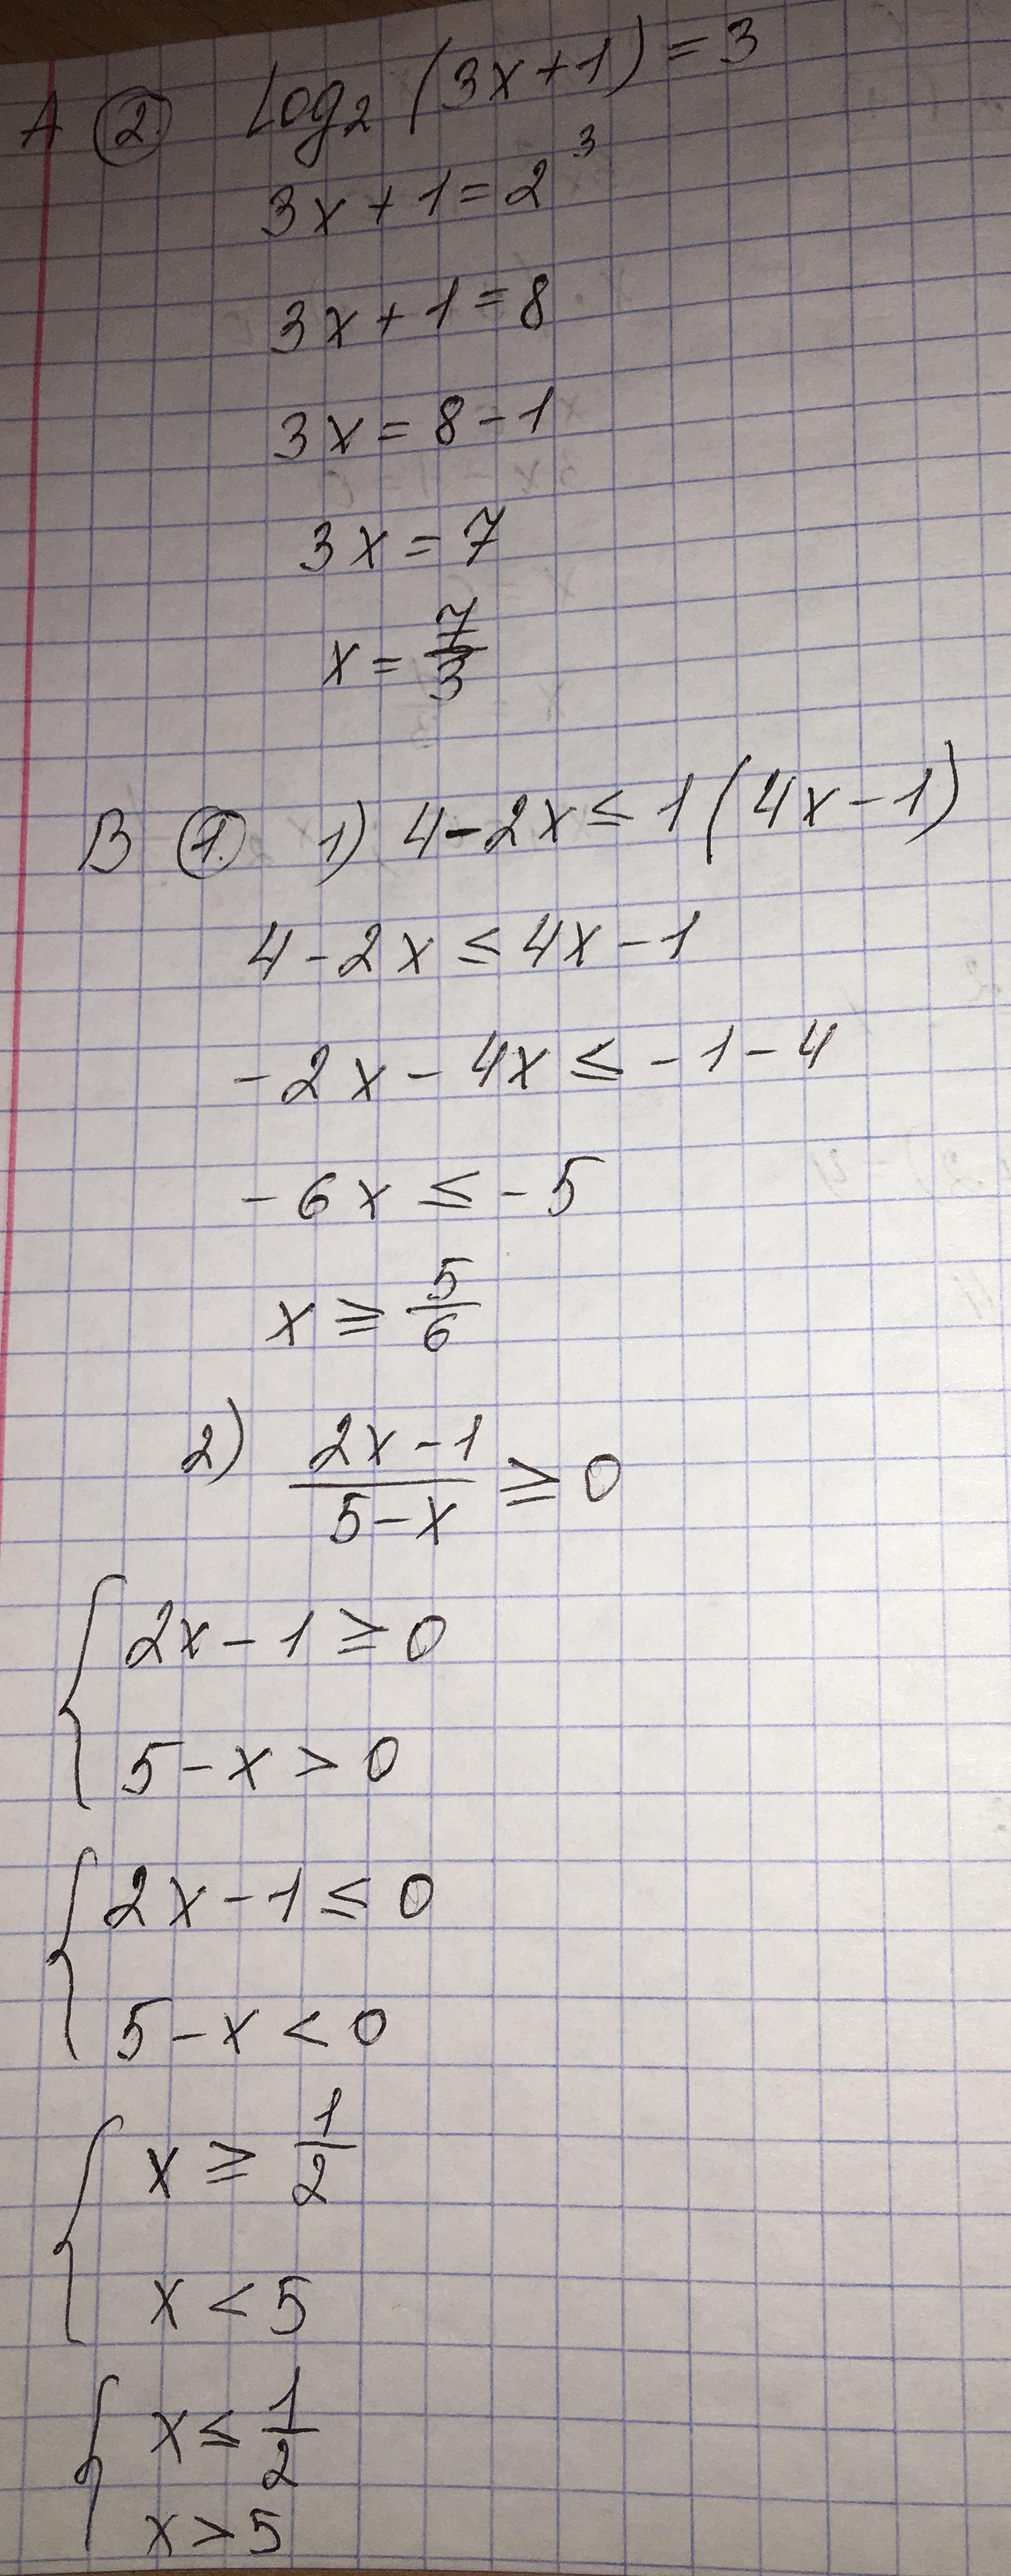 A ② Log₂ (3x+1) = 3
3x + 1 = 2³
3x + 1 = 8
3x = 8 - 1
3x = 7
x = 7/3
B ① 1) 4 - 2x ≤ 1 (4x - 1)
4 - 2x ≤ 4x - 1
- 2x - 4x ≤ - 1 - 4
- 6x ≤ - 5
x ≥ 5/6
2) (2x - 1)/(5 - x) ≥ 0
{ 2x - 1 ≥ 0
5 - x > 0
{ 2x - 1 ≤ 0
5 - x < 0
{ x ≥ 1/2
x < 5
{ x ≤ 1/2
x > 5